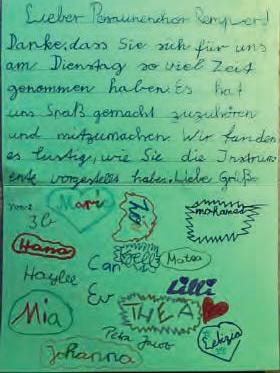 Lieber Posaunenchor
Danke, dass Sie sich für uns
am Dienstag so viel Zeit
genommen haben. Es hat
uns Spaß gemacht zuzuhören
und mitzumachen. Wir fanden
es lustig, wie Sie die Instrum
ente vorgestellt haben. Liebe Grüße
von 3b
Mari
mohamed
Hana
Can
Matea
Haylee
Ev
Lilli
Mia
THEA
Petr Jacob
Johanna